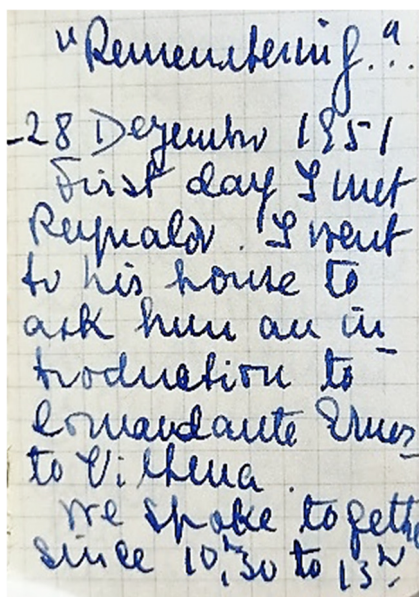 "Remembering."..
-28 Dezembro 1951
First day I met
Reynaldo. I went
to his house to
ask him an in-
troduction to
Comandante Ernes-
to Vilhena.
We spoke togeth
since 10h,30 to 13h